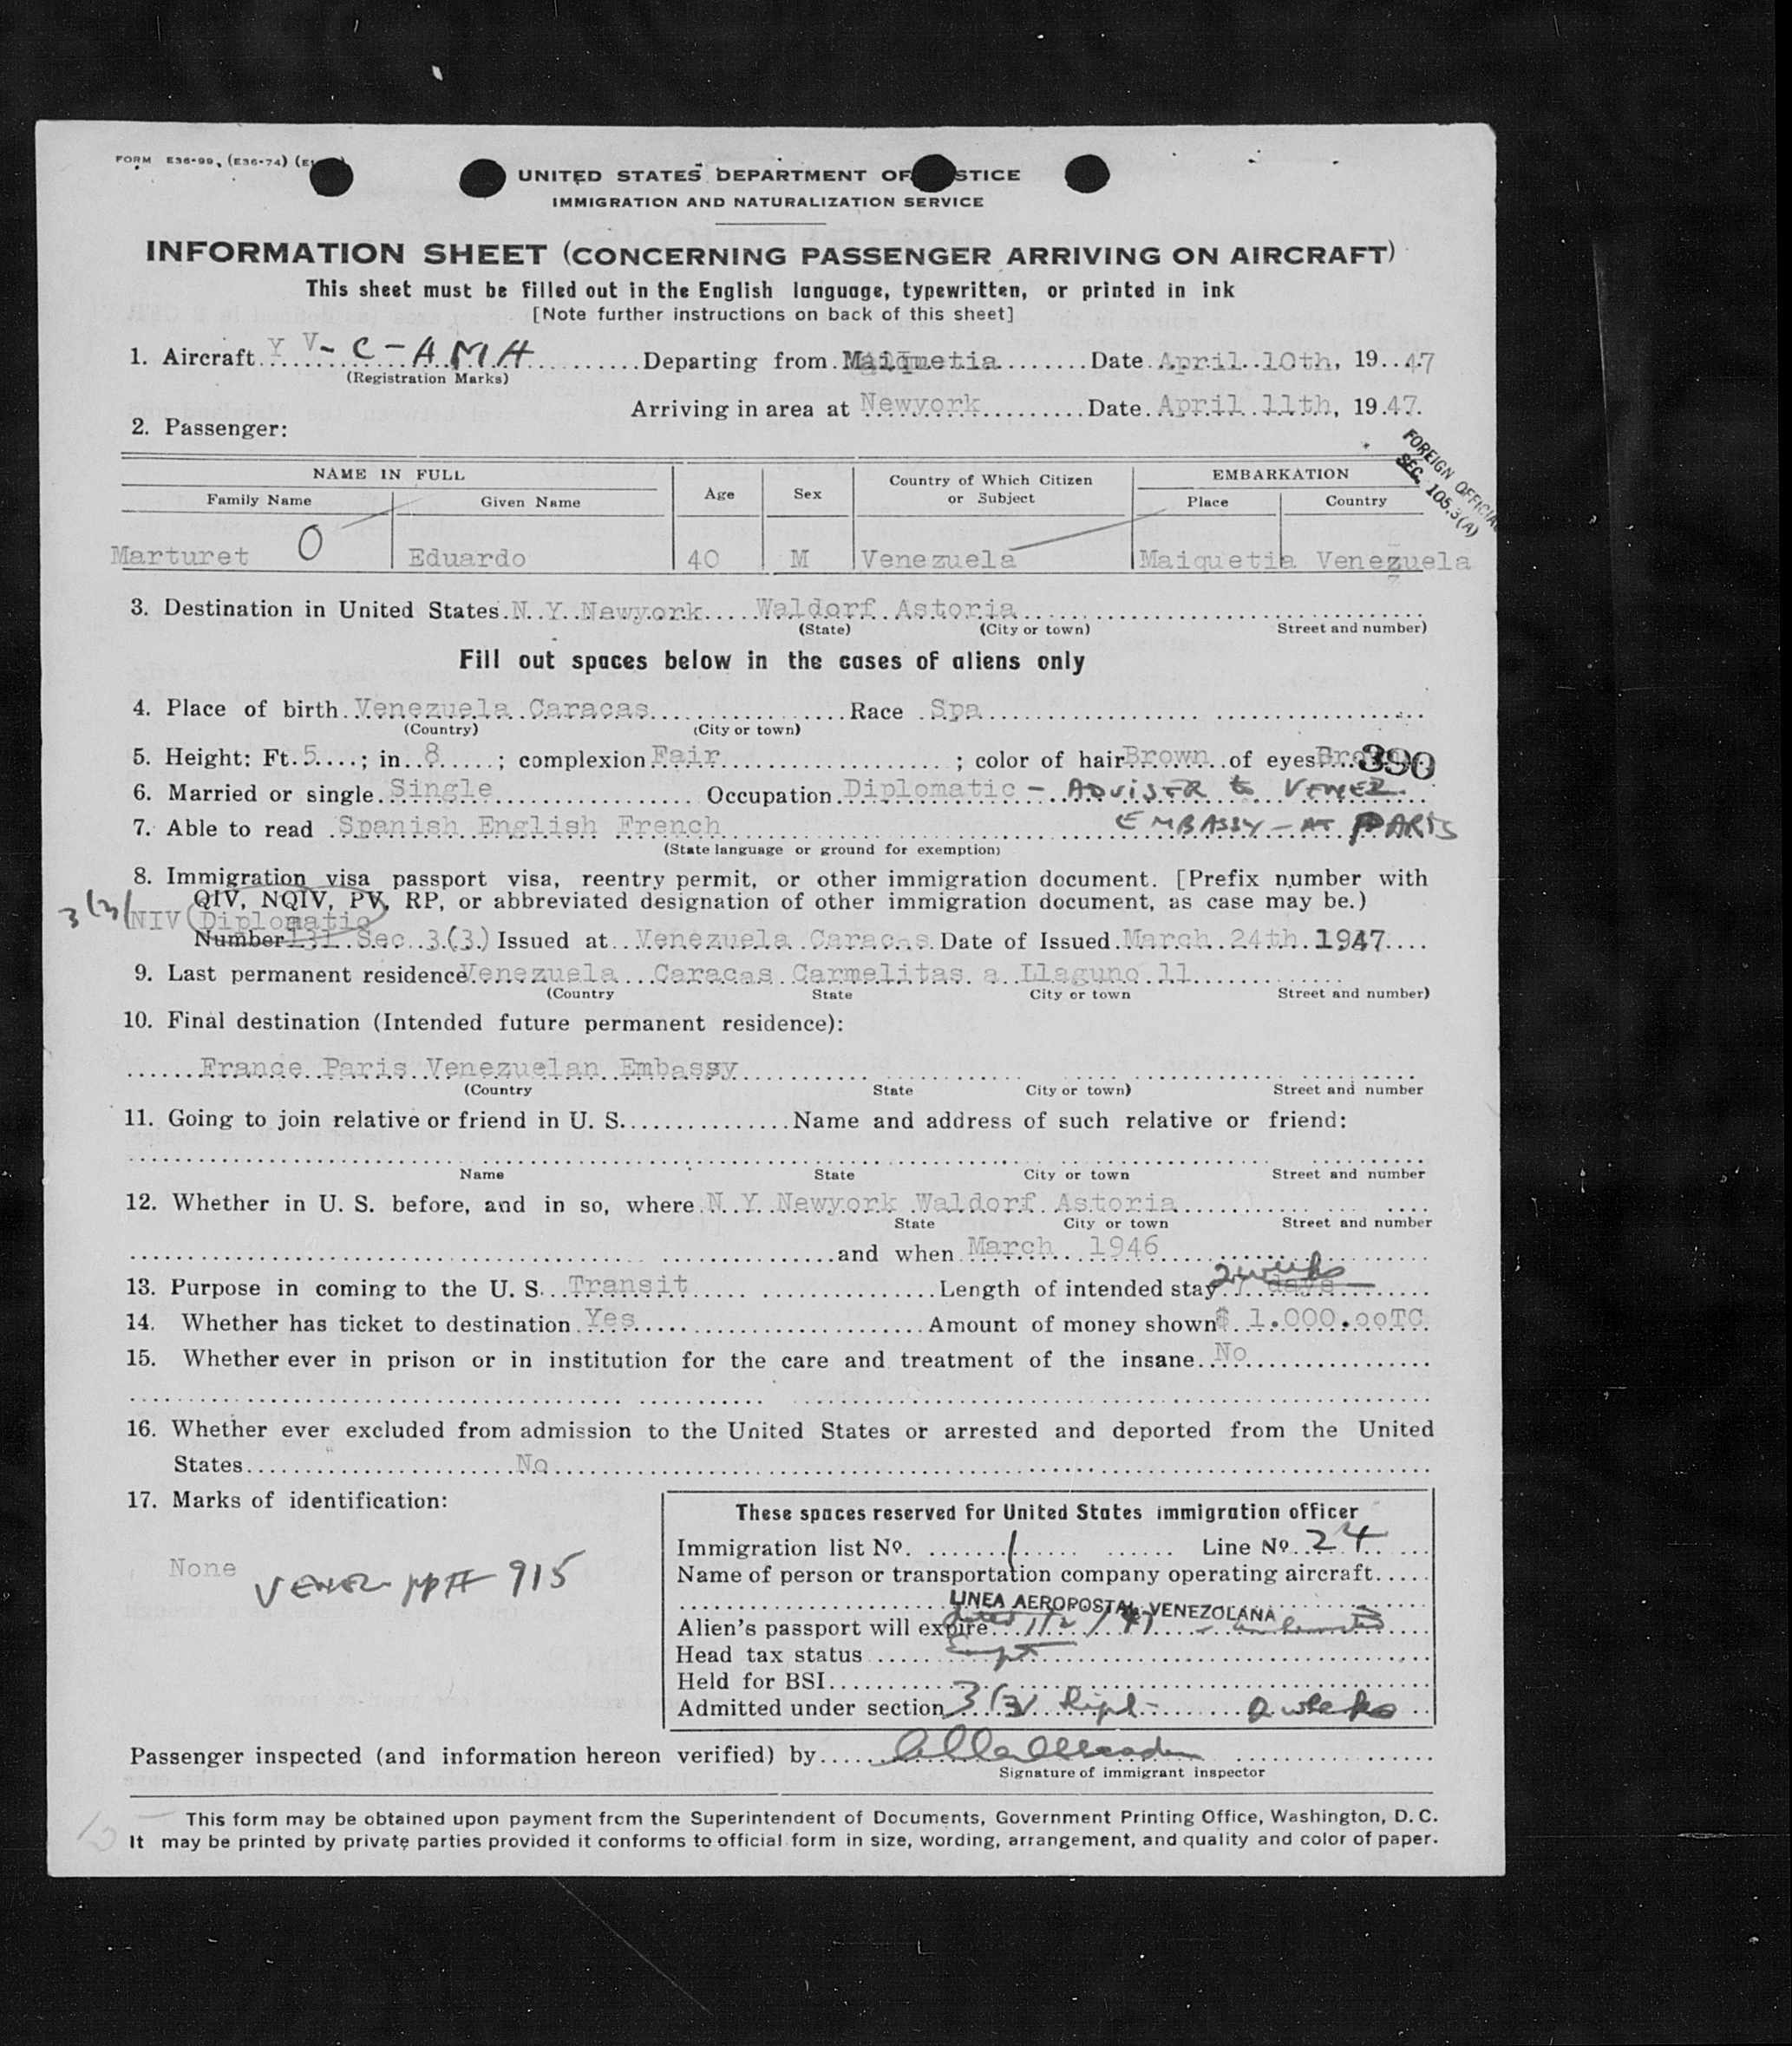 FORM E36-99, (E36-74) (E
UNITED STATES DEPARTMENT OF STICE
IMMIGRATION AND NATURALIZATION SERVICE
INFORMATION SHEET (CONCERNING PASSENGER ARRIVING ON AIRCRAFT)
This sheet must be filled out in the English language, typewritten, or printed in ink
[Note further instructions on back of this sheet]
1. Aircraft Y V-C-AMA Departing from Maiquetia Date April 10th, 19 47
(Registration Marks)
Arriving in area at Newyork Date April 11th, 19 47.
2. Passenger:
FOREIGN OFFICIAL
SEC. 105.3(A)
NAME IN FULL Age Sex Country of Which Citizen or Subject EMBARKATION
Family Name Given Name Place Country
Marturet O Eduardo 40 M Venezuela Maiquetia Venezuela
3. Destination in United States N Y Newyork Waldorf Astoria
(State) (City or town) Street and number)
Fill out spaces below in the cases of aliens only
4. Place of birth Venezuela Caracas Race Spa
(Country) (City or town)
5. Height: Ft. 5 ; in 8 ; complexion Fair ; color of hair Brown of eyes Bro 390
6. Married or single Single Occupation Diplomatic - ADVISER to VENEZ.
7. Able to read Spanish English French EMBASSY - AT PARIS
(State language or ground for exemption)
8. Immigration visa passport visa, reentry permit, or other immigration document. [Prefix number with
QIV, NQIV, PV, RP, or abbreviated designation of other immigration document, as case may be.)
3(3) NIV Diplomatic
Number 131 Sec 3(3) Issued at Venezuela Caracas Date of Issued March 24th 1947
9. Last permanent residence Venezuela Caracas Carmelitas a Llaguno 11
(Country State City or town Street and number)
10. Final destination (Intended future permanent residence):
France Paris Venezuelan Embassy
(Country State City or town) Street and number
11. Going to join relative or friend in U. S. Name and address of such relative or friend:
Name State City or town Street and number
12. Whether in U. S. before, and in so, where N Y Newyork Waldorf Astoria
State City or town Street and number
and when March 1946
13. Purpose in coming to the U. S. Transit Length of intended stay 2 weeks days
14. Whether has ticket to destination Yes Amount of money shown $ 1.000.ooTC
15. Whether ever in prison or in institution for the care and treatment of the insane No
16. Whether ever excluded from admission to the United States or arrested and deported from the United
States No
17. Marks of identification:
None VENEZ PPT 915
These spaces reserved for United States immigration officer
Immigration list No. 1 Line No 24
Name of person or transportation company operating aircraft
LINEA AEROPOSTAL VENEZOLANA
Alien's passport will expire
Head tax status
Held for BSI
Admitted under section 3(3) Dipl- 2 weeks
Passenger inspected (and information hereon verified) by
Signature of immigrant inspector
This form may be obtained upon payment from the Superintendent of Documents, Government Printing Office, Washington, D. C.
It may be printed by private parties provided it conforms to official form in size, wording, arrangement, and quality and color of paper.